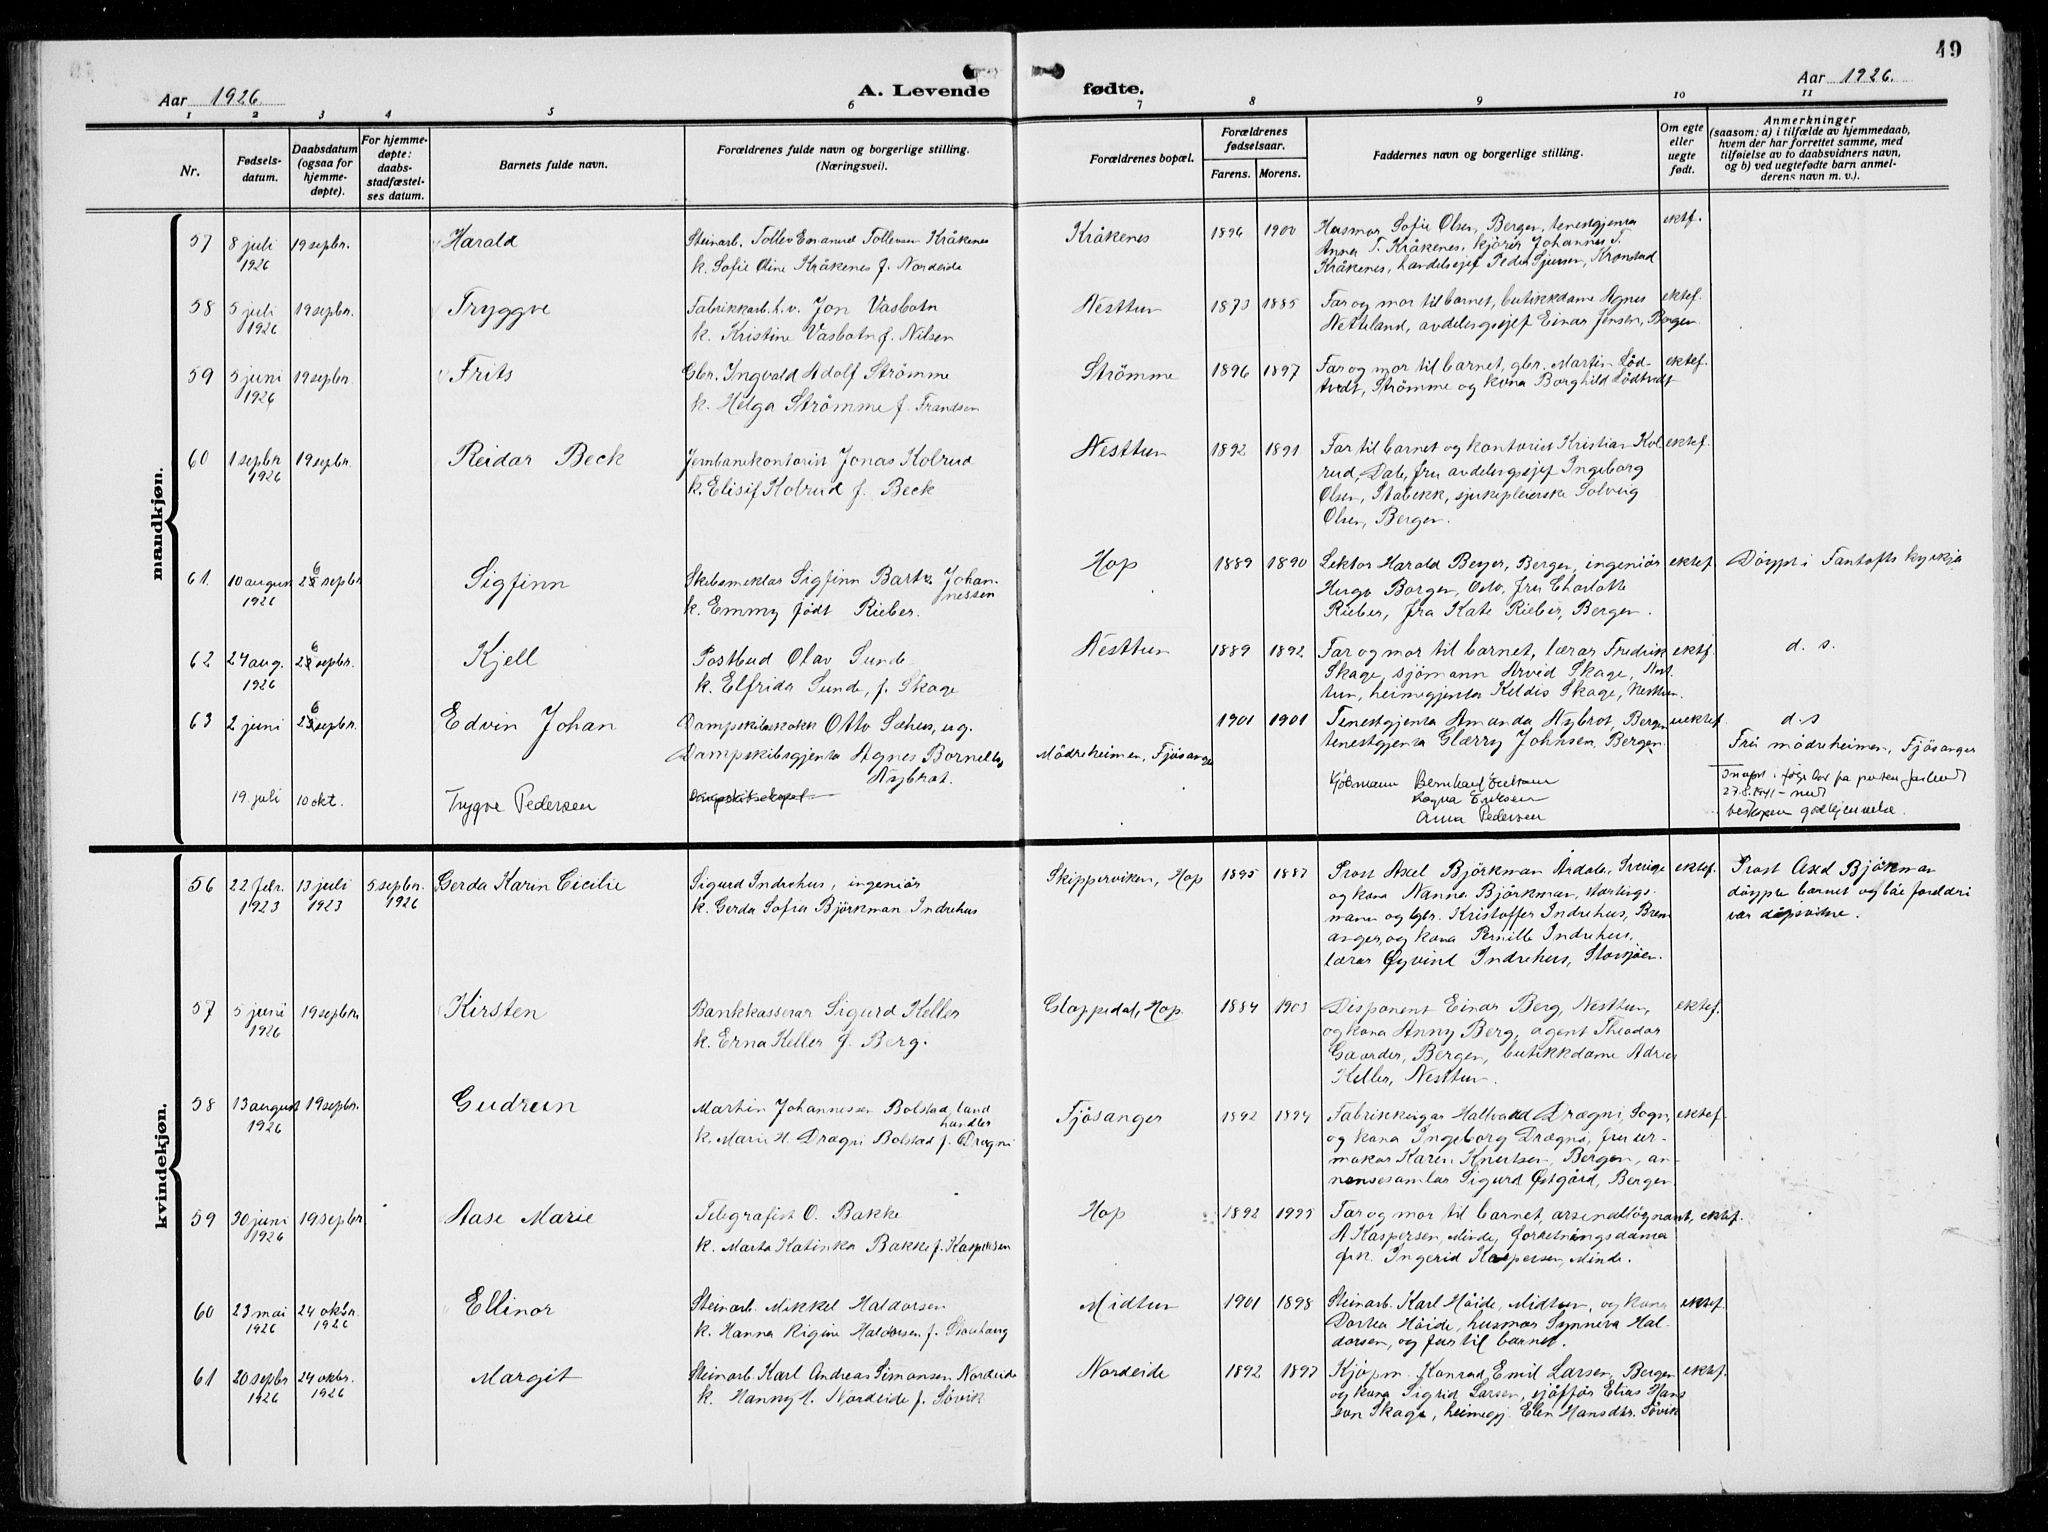 49
Aar 1926
A. Levende
fødte.
Aar 1926.
1 2 3 4 5 6 7 8 9 10 11
Nr.
Fødsels-
datum.
Daabsdatum
(ogsaa for
hjemme-
døpte).
For hjemme-
døpte:
daabs-
stadfæstel-
ses datum.
Barnets fulde navn.
Forældrenes fulde navn og borgerlige stilling.
(Næringsvei).
Forældrenes bopæl.
Forældrenes
fødselsaar.
Farens. Morens.
Faddernes navn og borgerlige stilling.
Om egte
eller
uegte
født.
Anmerkninger
(saasom: a) i tilfælde av hjemmedaab,
hvem der har forrettet samme, med
tilføielse av to daabsvidners navn,
og b) ved uegtefødte barn anmel-
derens navn m. v.).
mandkjøn.
57 8 juli 1926 19 sepbr. Harald
Steinarb. Tollev Emanuel Tollevsen Kråkenes
k. Sofie Oline Kråkenes f. Nordeide
Kråkenes 1896 1900
Husmor Sofie Olsen, Bergen, tenestgjenta
Anna T. Kråkenes, kjörer Johannes T.
Kråkenes, handelsejef Peder Sjursen, Kronstad
ektef.
58 5 juli 1926 19 sepbr. Tryggve
Fabrikkarb. h.v. Jon Vasbotn
k. Kristine Vasbotn f. Nilsen
Nesttun 1873 1885
Far og mor til barnet, butikkdame Agnes
Netteland, avdelingssjef Einar Jensen, Bergen
ektef.
59 5 juni 1926 19 sepbr. Frits
Gbr. Ingvald Adolf Strömme
k. Helga Strömme f. Frandsen
Strömme 1896 1897
Far og mor til barnet, gbr. Martin Lød-
tvedt, Strömme og kona Borghild Lødtvedt
ektef.
60 1 sepbr 1926 19 sepbr. Reidar Beck
Jernbanekontorist Jonas Kolrud
k. Elisif Kolrud f. Beck
Nesttun 1892 1891
Far til barnet og kontorist Kristian Kol-
rud, Dale, fru avdelingssjef Ingeborg
Olsen, Stabekk, sjukepleierske Solveig
Olsen, Bergen.
ektef.
61 10 august 1926 26 sepbr Sigfinn
Skibsmeklar Sigfinn Bartz Johan-
nessen
k. Emmy født Rieber.
Hop 1889 1890
Lektor Harald Beyer, Bergen, ingeniør
Hugo Borgen, Oslo, fru Charlotte
Rieber, fra Kate Rieber, Bergen.
ektef. Döypt i Fantofts kyrkja
62 24 aug. 1926 26 sepbr. Kjell
Postbud Olav Sunde
k. Elfrida Sunde, f. Skage
Nesttun 1889 1892
Far og mor til barnet, lærar Fredrik
Skage, sjömann Arvid Skage, Nest-
tun, heimegjenta Keldis Skage, Nesttun.
ektef. d. s.
63 2 juni 26 sepbr. Edvin Johan
Dampskibskokk Otto Sæhus, ug.
Dampskibsgjenta Agnes Bornella
Nybrot.
Mödreheimen, Fjösanger 1901 1901
Tenestgjenta Amanda Nybrot, Bergen
tenestgjenta Glærry Johnsen, Bergen.
uektef. d.s
Frå mødreheimen, Fjösanger
19. juli 10 okt. Trygve Pedersen
Kjøbmann Bernhard Eriksen
Ragna Eriksen
Anna Pedersen
27.8.1941
kvindekjøn.
56 22 febr. 1923 13 juli 1923 5 sepbr. 1926 Gerda Karin Cicilie
Sigurd Indrehus, ingeniör
k. Gerda Sofia Björkman Indrehus
Skipperviken, Hop 1895 1887
Prost Axel Björkman Årdala, Sverige
og kona Nanna Björkman,
mann og gbr. Kristoffer Indrehus, Brem
anger, og kona Pernille Indrehus,
lærar Øyvind Indrehus,
ektef.
Prost Axel Björkman
döypte barnet og båe foreldri
var dåpsvitne.
57 5 juni 1926 19 sepbr Kirsten
Bankkasserar Sigurd Keller
k. Erna Keller f. Berg.
Gloppedal, Hop. 1884 1903
Disponent Einar Berg, Nesttun,
og kona Anny Berg, agent Theodor
Gaarder, Bergen, butikkdame Adria
Keller, Nesttun.
ektef.
58 13 august 1926 19 sepbr. Gudrun
Martin Johannessen Bolstad, land
handler
k. Marie H. Drægni Bolstad f. Drægni
Fjösanger 1892 1894
Fabrikkeigar Hallvard Drægni, Sogn,
og kona Ingeborg Drægni, fru ur-
makar Karen Knutsen, Bergen, an-
nonsesamlar Sigurd Østgård, Bergen
ektef.
59 30 juni 1926 19 sepbr. Aase Marie
Telegrafist O. Bakke
k. Marta Katinka Bakke f. Kaspersen
Hop 1892 1895
Far og mor til barnet, arsenalløgnant,
A Kaspersen, Minde, forretningsdama
frk. Ingerid Kaspersen, Minde.
ektef.
60 23 mai 1926 24 oktbr. 1926 Ellinor
Steinarb. Mikkel Haldorsen
k. Hanna Rigine Haldorsen f.
Midtun 1901 1898
Steinarb. Karl Höide, Midtun, og kona
Dortea Höide, husmor Synneva Hal-
dorsen, og far til barnet.
ektef.
61 20 sepbr 1926 24 oktbr. 1926 Margit
Steinarb. Karl Andreas Simonsen Nordeide
k. Hanny H. Nordeide f. Sövik
Nordeide 1892 1897
Kjöpm. Konrad Emil Larsen, Bergen
og kona Sigrid Larsen, sjåffør Elias Hans
son Skage, heimegj. Elen Hansdtr. Sövik
ektef.